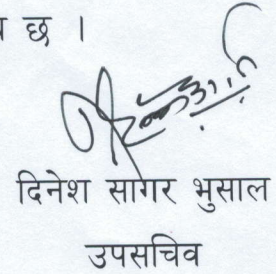 छ ।
दिनेश सागर भुसाल
उपसचिव